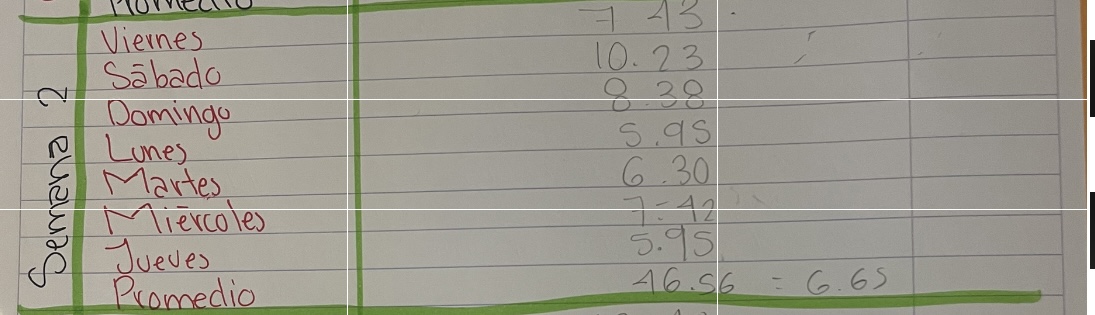 Promedio
Semana 2
Viernes 7 43
Sābado 10.23
Domingo 8.38
Lunes 5.95
Martes 6.30
Miērcoles 7.42
Jueves 5.95
Promedio 46.56 = 6.65